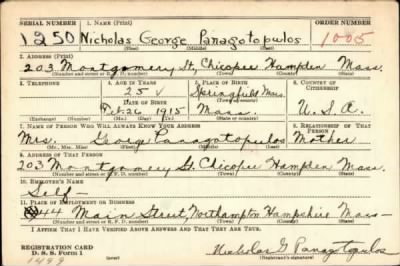 SERIAL NUMBER 1. NAME (Print) ORDER NUMBER
1250 Nicholas George Panagotopulos 1005
(First) (Middle) (Last)
2. ADDRESS (Print)
203 Montgomery St, Chicopee Hampden Mass.
(Number and street or R. F. D. number) (Town) (County) (State)
3. TELEPHONE 4. AGE IN YEARS 5. PLACE OF BIRTH 6. COUNTRY OF CITIZENSHIP
25 Springfield Mass
DATE OF BIRTH (Town or county)
Feb. 26 1915 Mass. U.S.A.
(Exchange) (Number) (Mo.) (Day) (Yr.) (State or country)
7. NAME OF PERSON WHO WILL ALWAYS KNOW YOUR ADDRESS 8. RELATIONSHIP OF THAT PERSON
Mrs. George Panagotopulos Mother
(Mr., Mrs., Miss) (First) (Middle) (Last)
9. ADDRESS OF THAT PERSON
203 Montgomery St. Chicopee Hampden Mass.
(Number and street or R. F. D. number) (Town) (County) (State)
10. EMPLOYER'S NAME
Self-
11. PLACE OF EMPLOYMENT OR BUSINESS
44 Main Street, Northampton Hampshire Mass-
(Number and street or R. F. D. number) (Town) (County) (State)
I AFFIRM THAT I HAVE VERIFIED ABOVE ANSWERS AND THAT THEY ARE TRUE.
REGISTRATION CARD
D. S. S. Form 1 Nicholas G Panagotopulos
1499 (Registrant's signature)